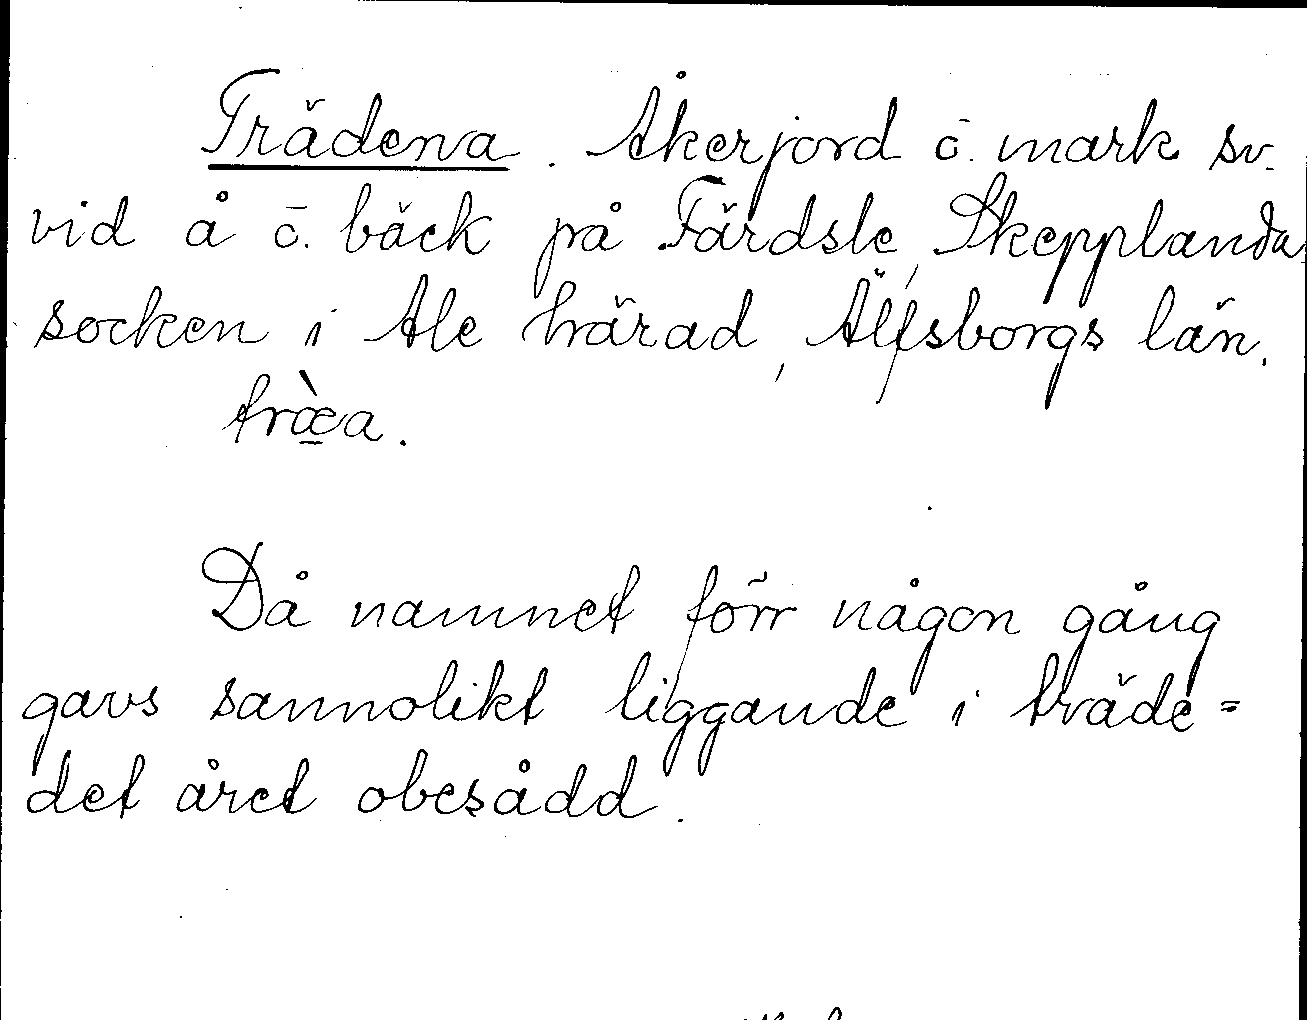 Trädena. Åkerjord o. mark sv.
vid å o. bäck på Färdsle, Skepplanda
socken i Ale härad, Älfsborgs län.
træ̱̀a.
Då namnet förr någon gång
gavs sannolikt liggande i träde =
det året obesådd.